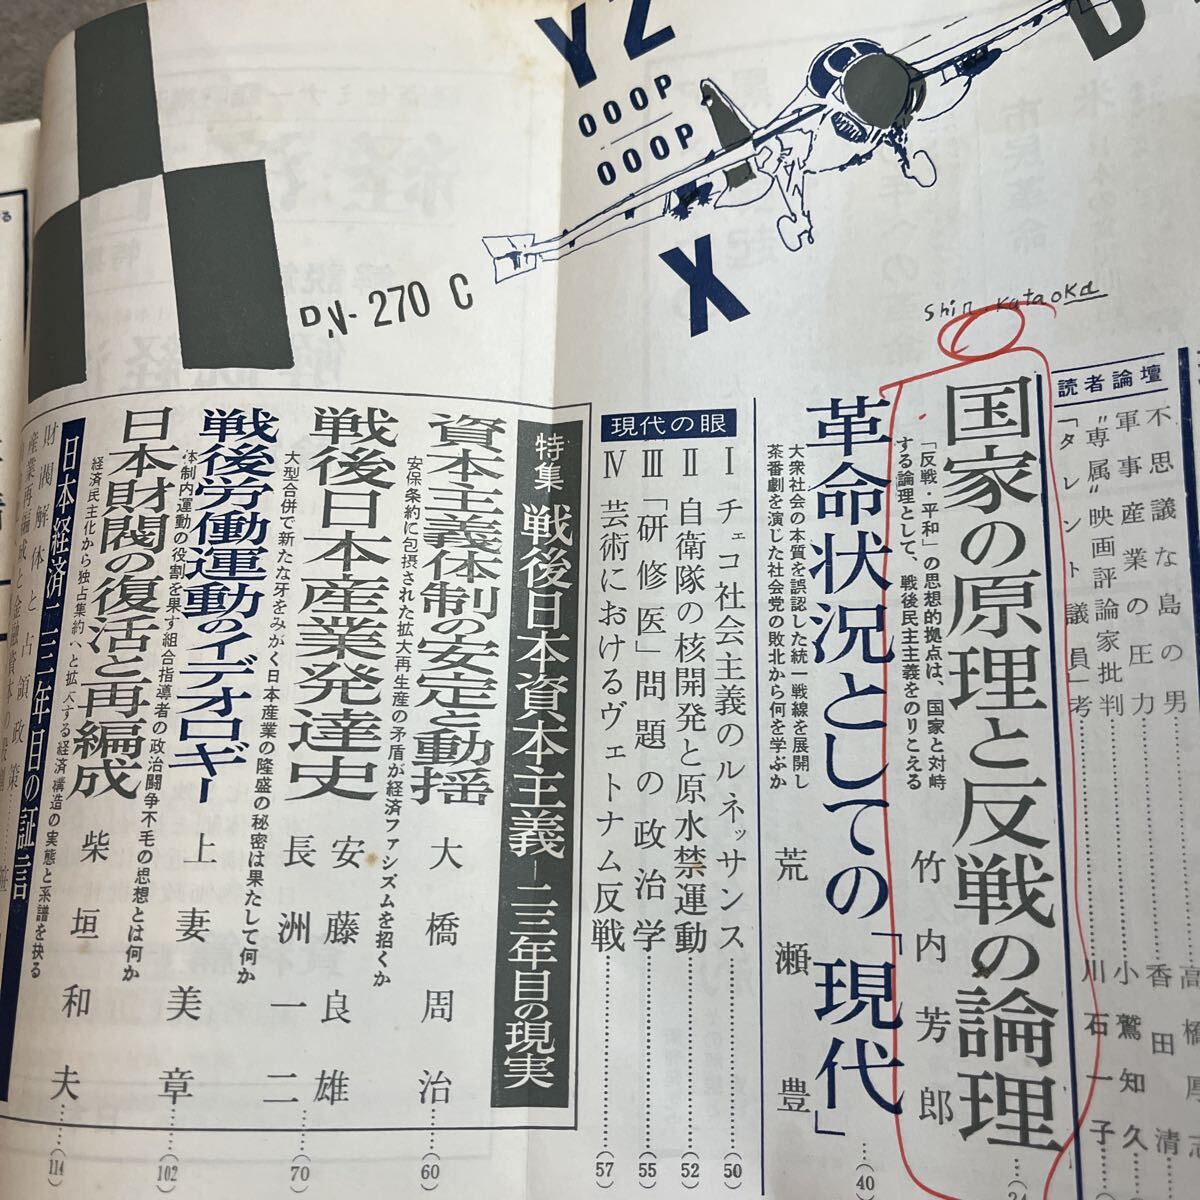 YZ
000P
000P
X
PN-270 C
Shin.Kataoka
読者論壇
不思議な島の男
軍事産業の圧力
香田清
"専属"映画評論家批判
小鷲知久
「タレント議員」考
川石一子
国家の原理と反戦の論理
「反戦・平和」の思想的拠点は、国家と対峙
する論理として、戦後民主主義をのりこえる
竹内芳郎
革命状況としての「現代」
大衆社会の本質を誤認した統一戦線を展開し
茶番劇を演じた社会党の敗北から何を学ぶか
荒瀬豊
(40
現代の眼
Ⅰ チェコ社会主義のルネッサンス (50)
Ⅱ 自衛隊の核開発と原水禁運動 (52)
Ⅲ 「研修医」問題の政治学 (55)
Ⅳ 芸術におけるヴェトナム反戦 (57)
特集 戦後日本資本主義―二三年目の現実
資本主義体制の安定と動揺
安保条約に包摂された拡大再生産の矛盾が経済ファシズムを招くか
大橋周治 (60)
戦後日本産業発達史
大型合併で新たな牙をみがく日本産業の隆盛の秘密は果たして何か
安藤良雄
長洲一二 (70)
戦後労働運動のイデオロギー
体制内運動の役割を果す組合指導者の政治闘争不毛の思想とは何か
上妻美章 (102)
日本財閥の復活と再編成
経済民主化から独占集約へと拡大する経済構造の実態と系譜を抉る
柴垣和夫 (114)
日本経済二三年目の証言
財閥解体と占領政策